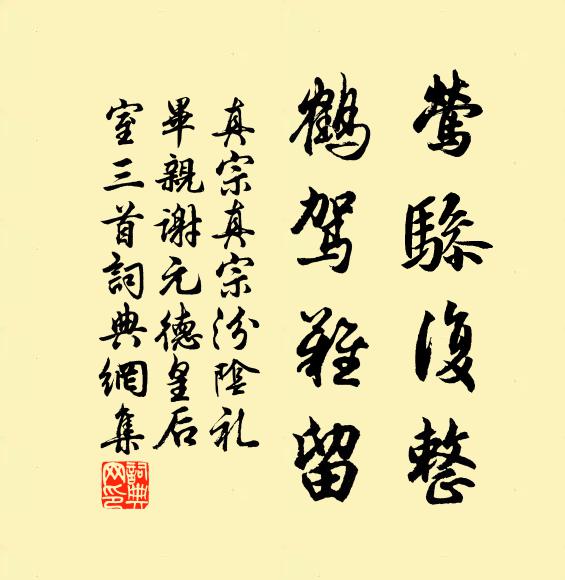 鶯驂復整
鶴駕難留
真宗真宗汾陰礼
畢親謝元德皇后
室三首詞典網集
詞典
网印